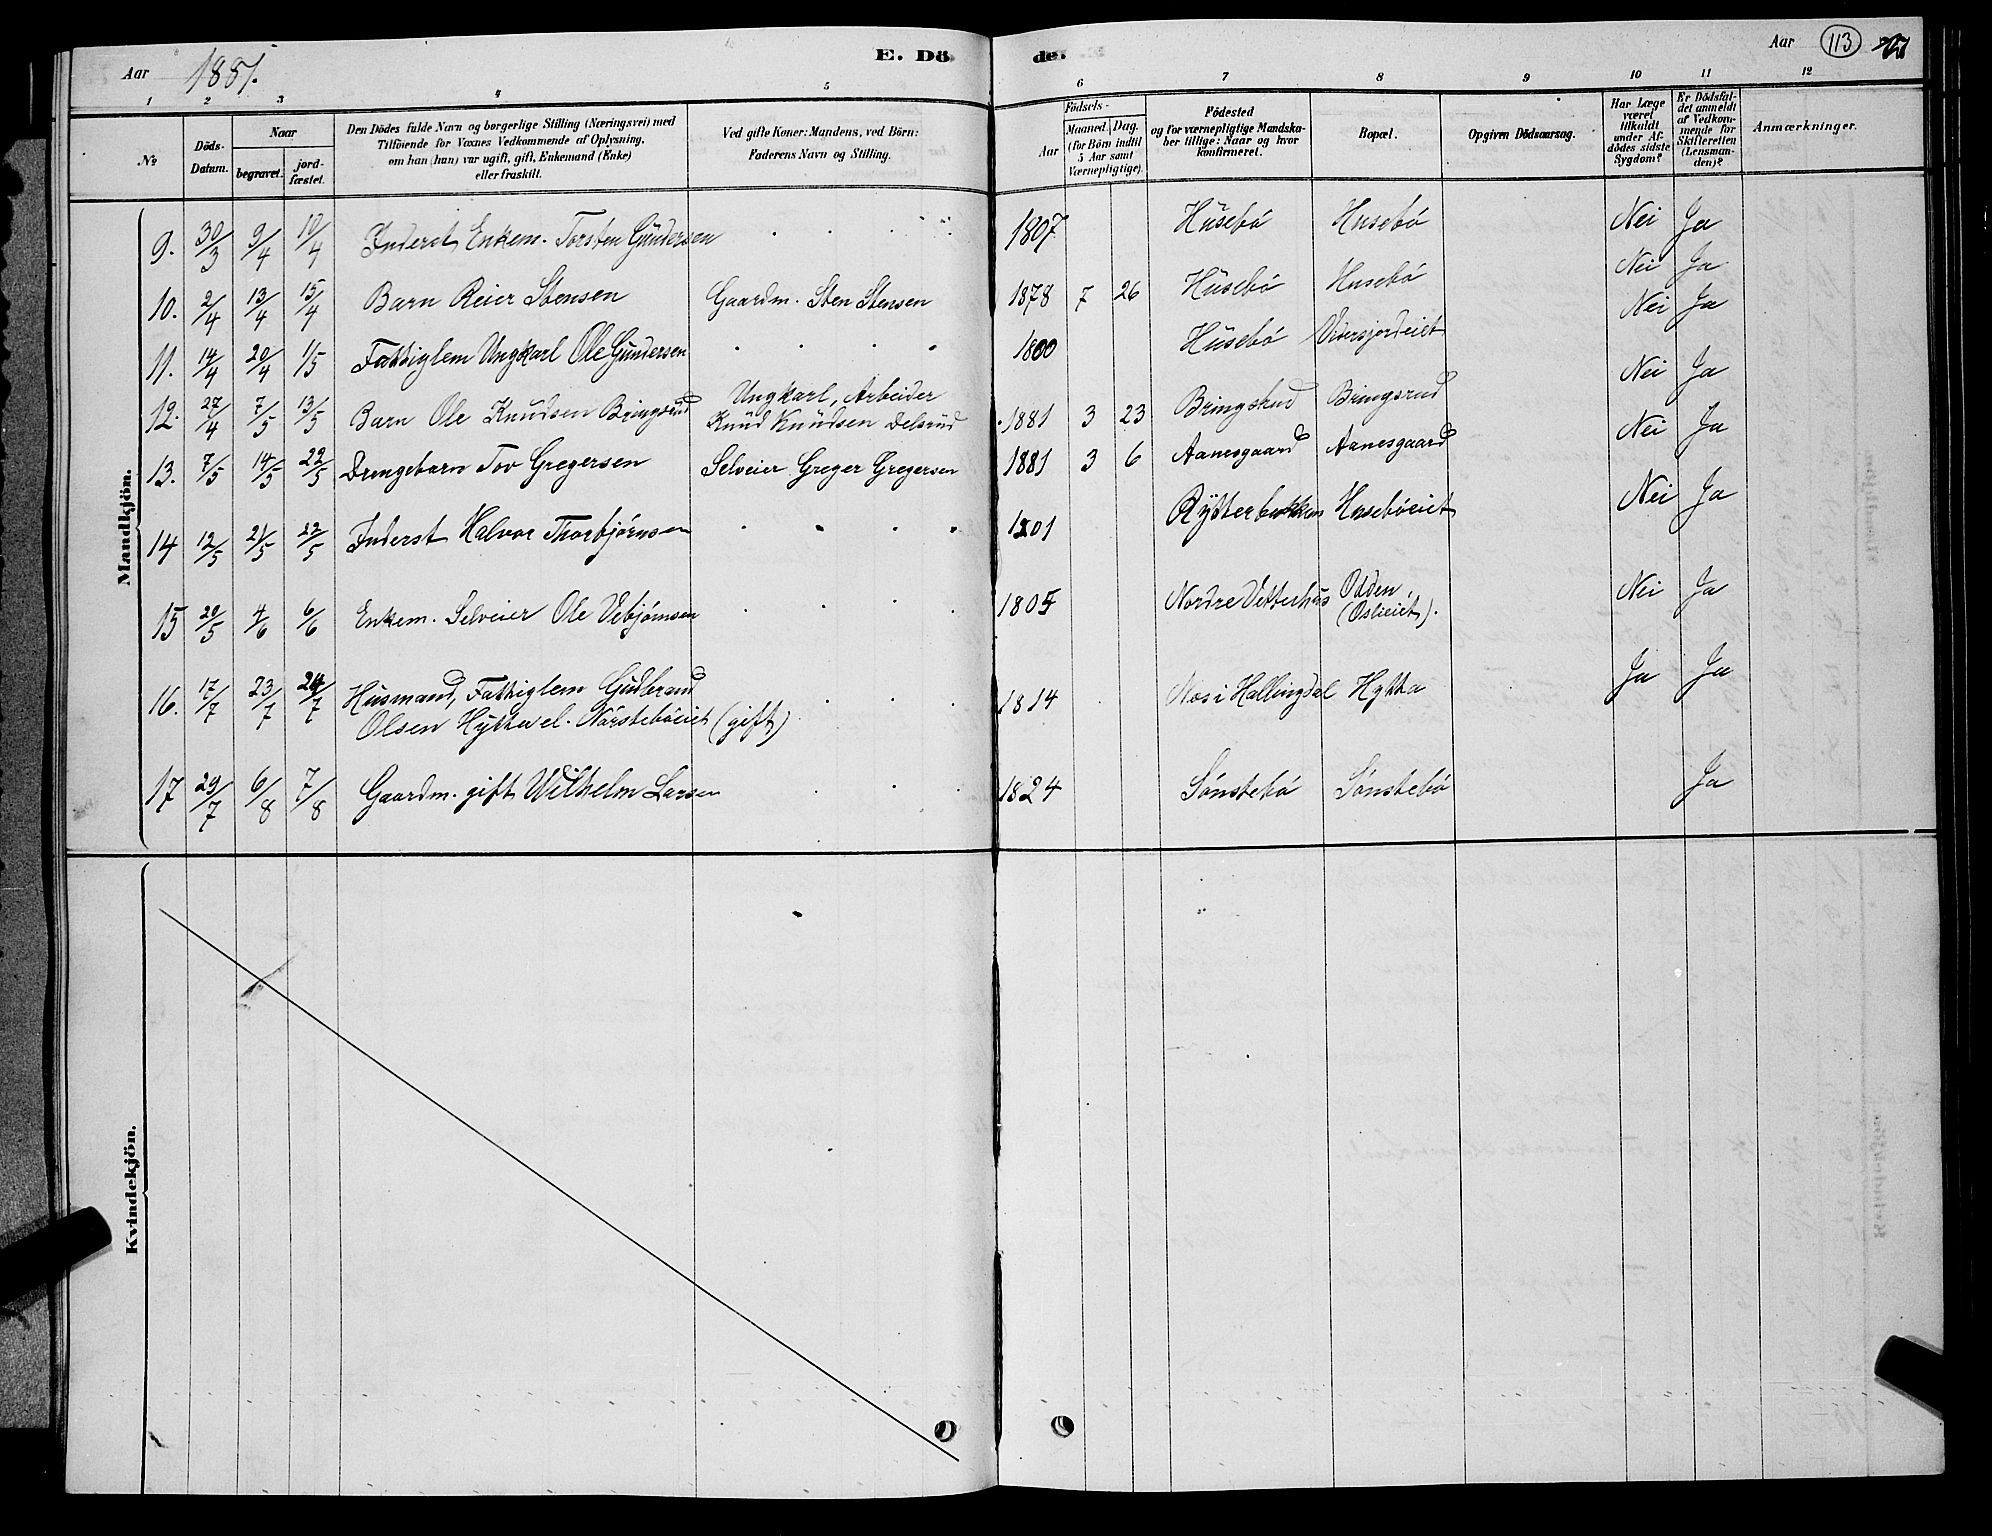 Aar 1881.
E. Döde.
Aar 113
1 2 3 4 5 6 7 8 9 10 11 12
No
Döds-Datum.
Naar
begravet.
jord-fæstet.
Den Dödes fulde Navn og borgerlige Stilling (Næringsvei) med
Tilföiende for Voxnes Vedkommende af Oplysning,
om han (hun) var ugift, gift, Enkemand (Enke)
eller fraskilt.
Ved gifte Koner: Mandens, ved Börn:
Faderens Navn og Stilling.
Födsels-
Aar
Maaned. Dag.
(for Börn indtil
5 Aar samt
Værnepligtige).
Födested
og for værnepligtige Mandska-
ber tillige: Naar og hvor
konfirmeret.
Bopæl.
Opgiven Dödsaarsag.
Har Læge
været
tilkaldt
under Af-
dödes sidste
Sygdom?
Er Dödsfal-
det anmeldt
af Vedkom-
mende for
Skifteretten
(Lensman-
den)?
Anmærkninger.
Mandkjön.
9. 30/3 9/4 10/4 Inderst Enkem. Torsten Gundersen 1807 Husebö Husebö Nei Ja
10. 2/4 13/4 15/4 Barn Reier Stensen Gaardm. Sten Stensen 1878 7 26 Husebö Husebö Nei Ja
11. 14/4 20/4 1/5 Fattiglem Ungkarl Ole Gundersen 1800 Husebö Vidersjordeiet Nei Ja
12. 27/4 7/5 13/5 Barn Ole Knudsen Bringsrud Ungkarl, Arbeider
Knud Knudsen Delsrud 1881 3 23 Bringsrud Bringsrud Nei Ja
13. 7/5 14/5 22/5 Drengebarn Tov Gregersen Selveier Greger Gregersen 1881 3 6 Aanesgaard Aanesgaard Nei Ja
14 12/5 21/5 22/5 Inderst Halvor Thorbjörnsen 1801 Rytterbakken Huseböeiet Nei Ja
15 20/5 4/6 6/6 Enkem. Selveier Ole Vebjörnsen 1805 Nordre Vetterhus Odden
(Oslieiet). Nei Ja
16. 17/7 23/7 24/7 Husmand, Fattiglem Gudbrand
Olsen Hytta el. Nörsteböeiet (gift) 1814 Nes i Hallingdal Hytta Ja Ja
17 29/7 6/8 7/8 Gaardm. gift Wilhelm Larsen 1824 Sönstebö Sönstebö Ja
Kvindekjön.